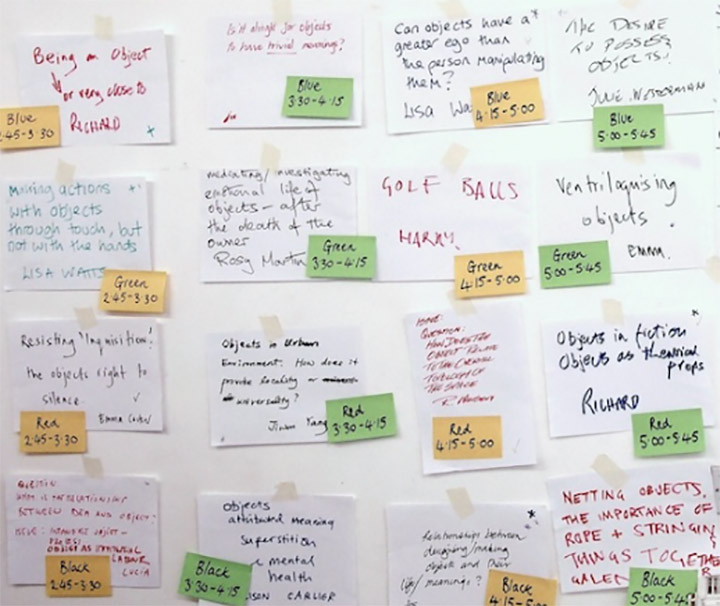 Being an Object
or very close to
RICHARD
Blue
2:45-3:30
Is it alright for objects
to have trivial meanings?
Blue
3:30-4:15
Can objects have a
greater ego than
the person manipulating
them?
LISA
Blue
4:15-5:00
THE DESIRE
TO POSSESS
OBJECTS!
JULIE
Blue
5:00-5:45
Mining actions
with objects
through touch, but
not with the hands
LISA WATTS
Green
2:45-3:30
mediating/investigating
emotional life of
objects - after
the death of the
owner
Rosy Martin
Green
3:30-4:15
GOLF BALLS
HARRY
Green
4:15-5:00
Ventriloquising
objects.
EMMA.
Green
5:00-5:45
Resisting 'Inquisition'!
the objects right to
silence
Emma
Red
2:45-3:30
Objects in Urban
Environment: How does it
private locality or
universality?
Jiwon Yang
Red
3:30-4:15
QUESTION:
HOW DOES THE
OBJECT RELATE
TO THE
TOPOLOGY OF
THE SPACE
Red
4:15-5:00
Objects in fiction
Objects as theatrical
props
RICHARD
Red
5:00-5:45
QUESTION
WHAT IS THE RELATIONSHIP
BETWEEN IDEA AND OBJECT?
OBJECT AS
LABOUR
LUCIA
Black
2:45-3:30
objects
attributed meaning
superstition
mental
health
CARLIER
Black
3:30-4:15
Relationships between
designing/making
object and their
meanings?
Black
4:15-5:00
NETTING OBJECTS.
THE IMPORTANCE OF
ROPE + STRINGING
THINGS TOGETHER
Black
5:00-5:45